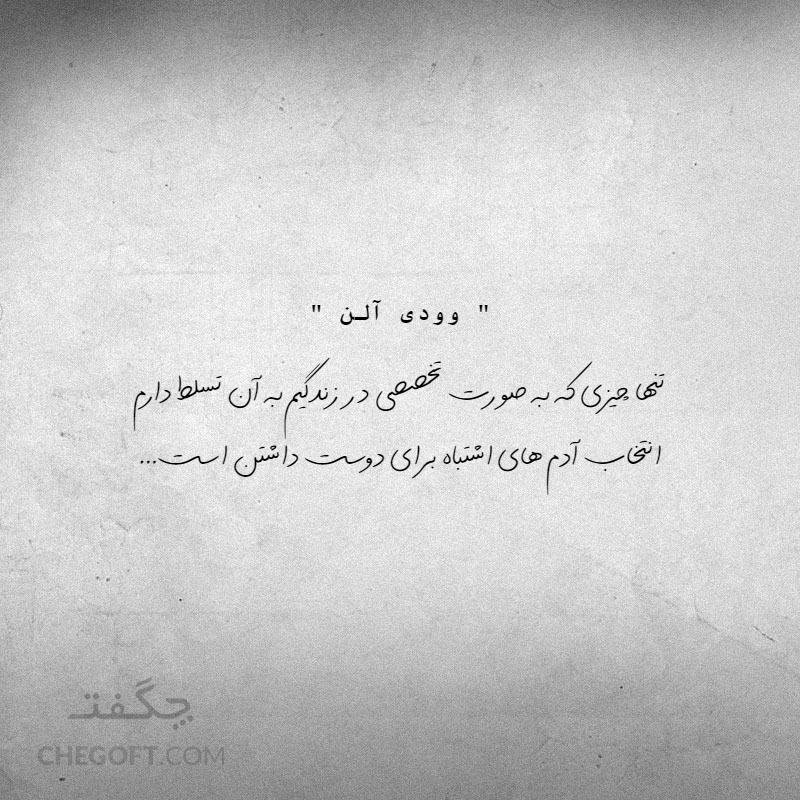 " وودی آلـن "
تنها چیزی که به صورت تخصصی در زندگیم به آن تسلط دارم
انتخاب آدم های اشتباه برای دوست داشتن است...
چگفتـ
CHEGOFT.COM